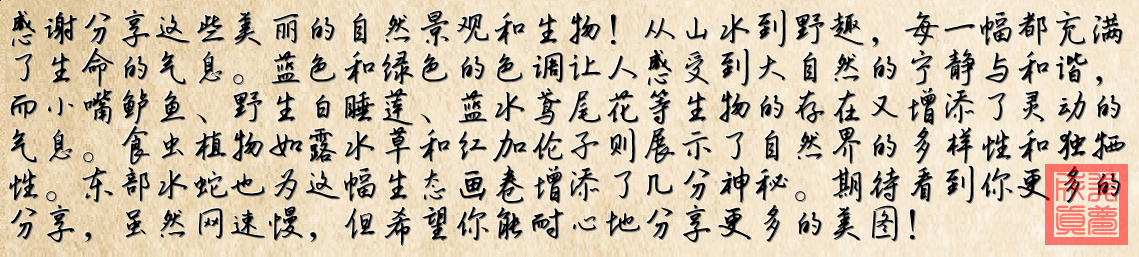 感谢分享这些美丽的自然景观和生物！从山水到野趣，每一幅都充满
了生命的气息。蓝色和绿色的色调让人感受到大自然的宁静与和谐，
而小嘴鲈鱼、野生白睡莲、蓝水鸢尾花等生物的存在又增添了灵动的
气息。食虫植物如露水草和红加伦子则展示了自然界的多样性和独牺
性。东部水蛇也为这幅生态画卷增添了几分神秘。期待看到你更多的
分享，虽然网速慢，但希望你能耐心地分享更多的美图！